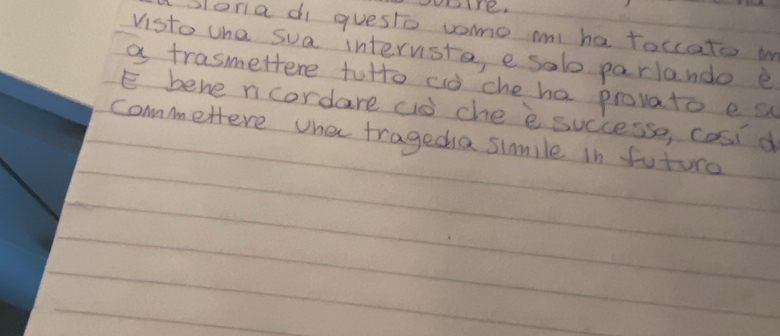 storia di questo uomo mi ha toccato
visto una sua intervista, e solo parlando è
a trasmettere tutto ciò che ha provato e
E bene ricordare ciò che è successo, così
commettere una tragedia simile in futuro